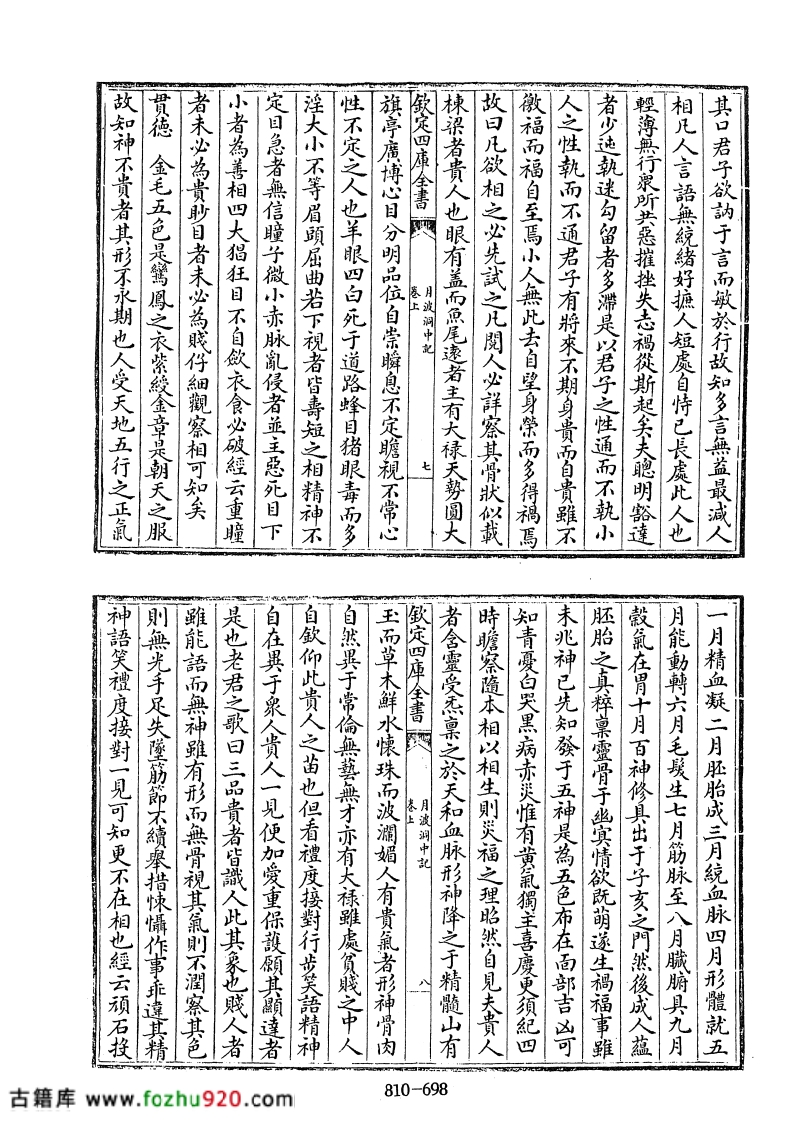 其口君子欲訥于言而敏於行故知多言無益最減人
相凡人言語無統緒好摭人短處自恃已長處此人也
輕薄無行衆所共惡摧挫失志禍從斯起矣夫聰明豁達
者少迍執迷勾留者多滯是以君子之性通而不執小
人之性執而不通君子有將來不期身貴而自貴雖不
徼福而福自至焉小人無此去自望身榮而多得禍焉
故曰凡欲相之必先試之凡閱人必詳察其骨狀似載
棟梁者貴人也眼有蓋而魚尾遠者主有大祿天勢圓大
欽定四庫全書
月波洞中記
卷上
七
旗亭廣博心目分明品位自崇瞬息不定瞻視不常心
性不定之人也羊眼四白死于道路蜂目猪眼毒而多
淫大小不等眉頭屈曲若下視者皆壽短之相精神不
定目急者無信瞳子微小赤脉亂侵者並主惡死目下
小者為善相四大猖狂目不自歛衣食必破經云重瞳
者未必為貴眇目者未必為賤仔細觀察相可知矣
貫德　金毛五色是鸞鳳之衣紫綬金章是朝天之服
故知神不貴者其形不永期也人受天地五行之正氣
一月精血凝二月胚胎成三月統血脉四月形體就五
月能動轉六月毛髮生七月筋脉至八月臟腑具九月
穀氣在胃十月百神修具出于子亥之門然後成人蘊
胚胎之真粹禀靈骨于幽冥情欲既萌遂生禍福事雖
未兆神已先知發于五神是為五色布在面部吉凶可
知青憂白哭黑病赤災惟有黄氣獨主喜慶更須紀四
時瞻察隨本相以相生則災福之理昭然自見夫貴人
者含靈受炁禀之於天和血脉形神降之于精髓山有
欽定四庫全書
月波洞中記
卷上
八
玉而草木鮮水懷珠而波瀾媚人有貴氣者形神骨肉
自然異于常倫無藝無才亦有大祿雖處貧賤之中人
自欽仰此貴人之苗也但看禮度接對行步笑語精神
自在異于衆人貴人一見便加愛重保護願其顯達者
是也老君之歌曰三品貴者皆識人此其象也賤人者
雖能語而無神雖有形而無骨視其氣則不潤察其色
則無光手足失墜筋節不續舉措悚懾作事乖違其精
神語笑禮度接對一見可知更不在相也經云頑石投
810-698
古籍库 www.fozhu920.com